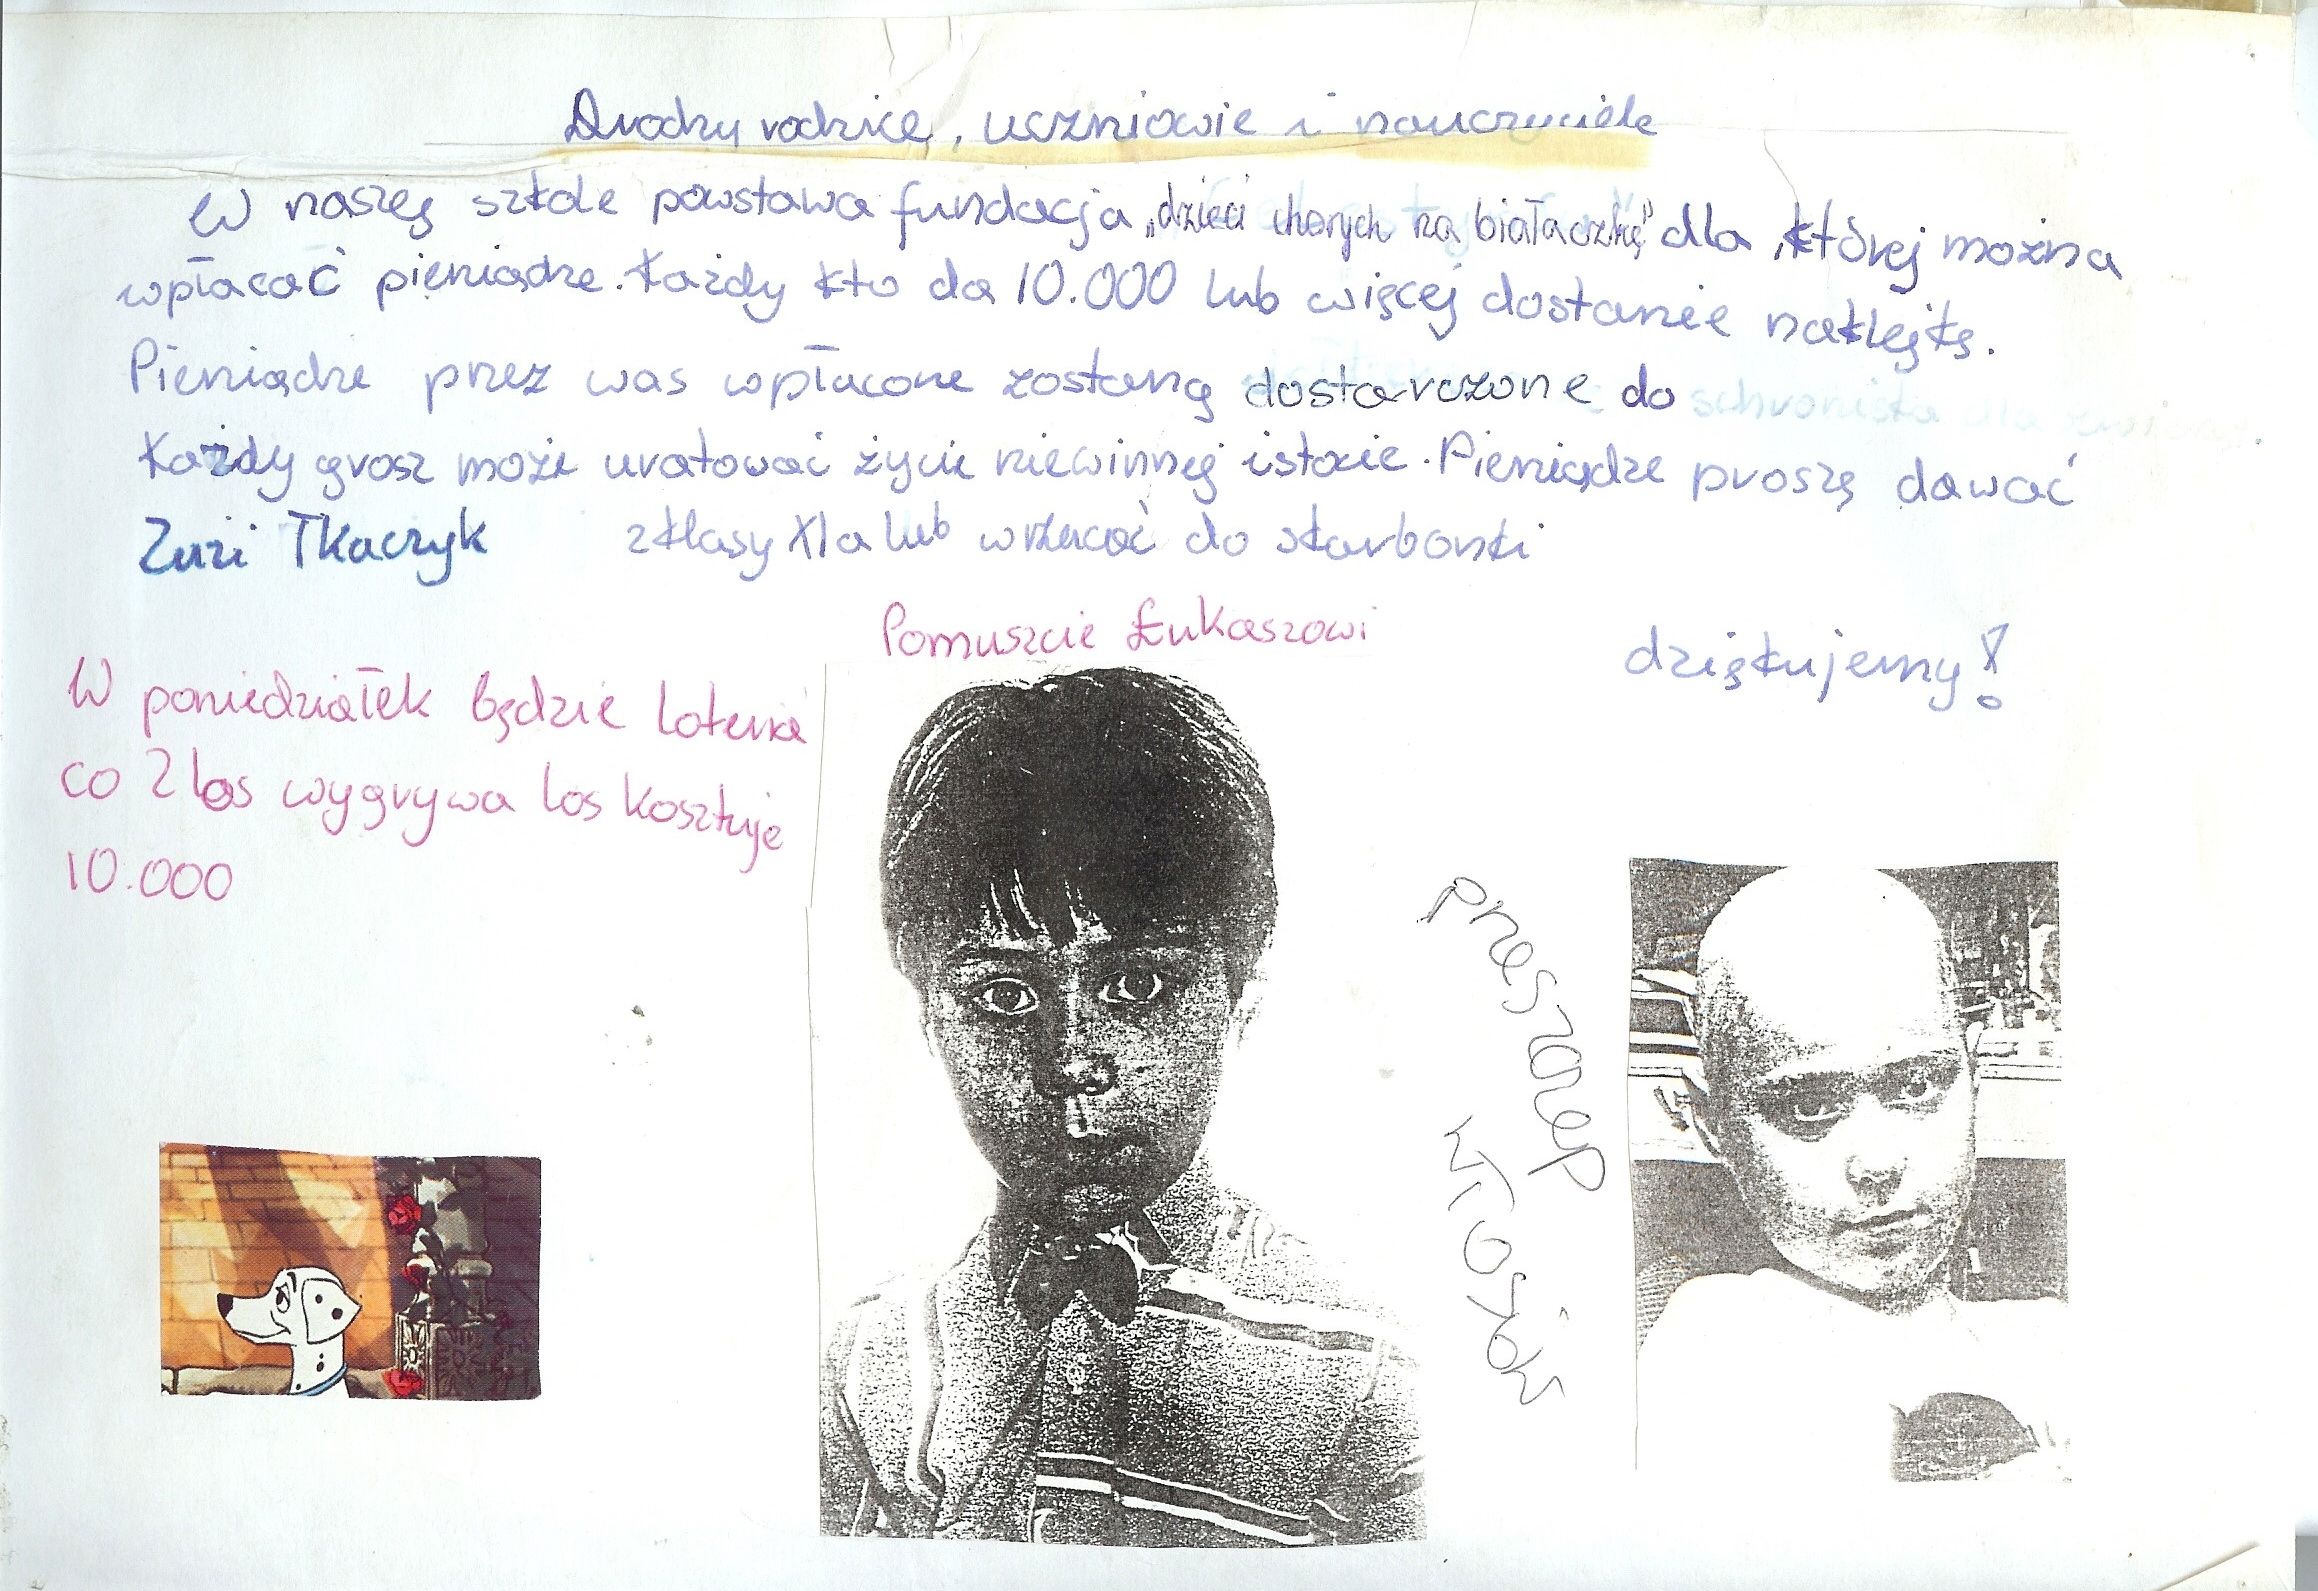 Drodzy rodzice, uczniowie i nauczyciele
W naszej szkole powstawa fundacja „dzieci chorych na białaczkę” dla której można
wpłacać pieniądze. Każdy kto da 10.000 lub więcej dostanie naklejkę.
Pieniądze przez was wpłacone zostaną dostarczone do schroniska dla
Każdy grosz może uratować życie niewinnej istocie. Pieniądze proszę dawać
Zuzi Tkaczyk z klasy VIa lub wrzucać do skarbonki
Pomuszcie Łukaszowi
dziękujemy!
W poniedziałek będzie loteria
co 2 los wygrywa los kosztuje
10.000
przeszczep
włosów